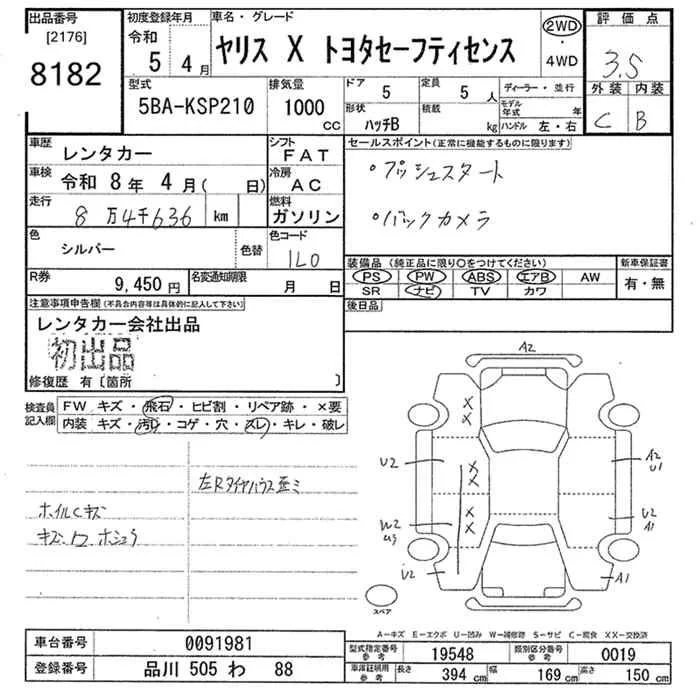 出品番号 初度登録年月 車名・グレード 評価点
[2176] 令和 2WD
8182 5 4月 ヤリス X トヨタセーフティセンス 4WD 3.5
型式 排気量 ドア 定員 ディーラー・並行 外装 内装
5BA-KSP210 1000 CC 5 5人 モデル年式 年 C B
形状 積載
ハッチB kg ハンドル 左・右
車歴 レンタカー シフト FAT セールスポイント(正常に機能するものに限ります)
車検 令和 8年 4月( 日) 冷房 AC ・プッシュスタート
走行 8万4千636 km 燃料 ガソリン ・バックカメラ
色 シルバー 色替 色コード 1L0
装備品(純正品に限り○をつけてください) 新車保証書
R券 9,450円 名変通知期限 月 日 PS PW ABS エアB AW 有・無
SR ナビ TV カワ
注意事項申告欄(不具合内容等は具体的に記入して下さい) 後日品
レンタカー会社出品
初出品
修復歴 有〔箇所 〕
検査員記入欄 FW キズ・飛石・ヒビ割・リペア跡・×要
内装 キズ・汚レ・コゲ・穴・ズレ・キレ・破レ
左Rタイヤハウス歪ミ
ホイルCキズ
A2
X
X
U2 X
X
A2
U1
W2 X
X
U2
A1
U2
A1
スペア
A−キズ E−エクボ U−凹み W−補修跡 S−サビ C−腐食 XX−交換済
車台番号 0091981 型式指定番号 参考 19548 類別区分番号 参考 0019
登録番号 品川 505 わ 88 車庫証明用 参考 長さ 394 cm 幅 169 cm 高さ 150 cm